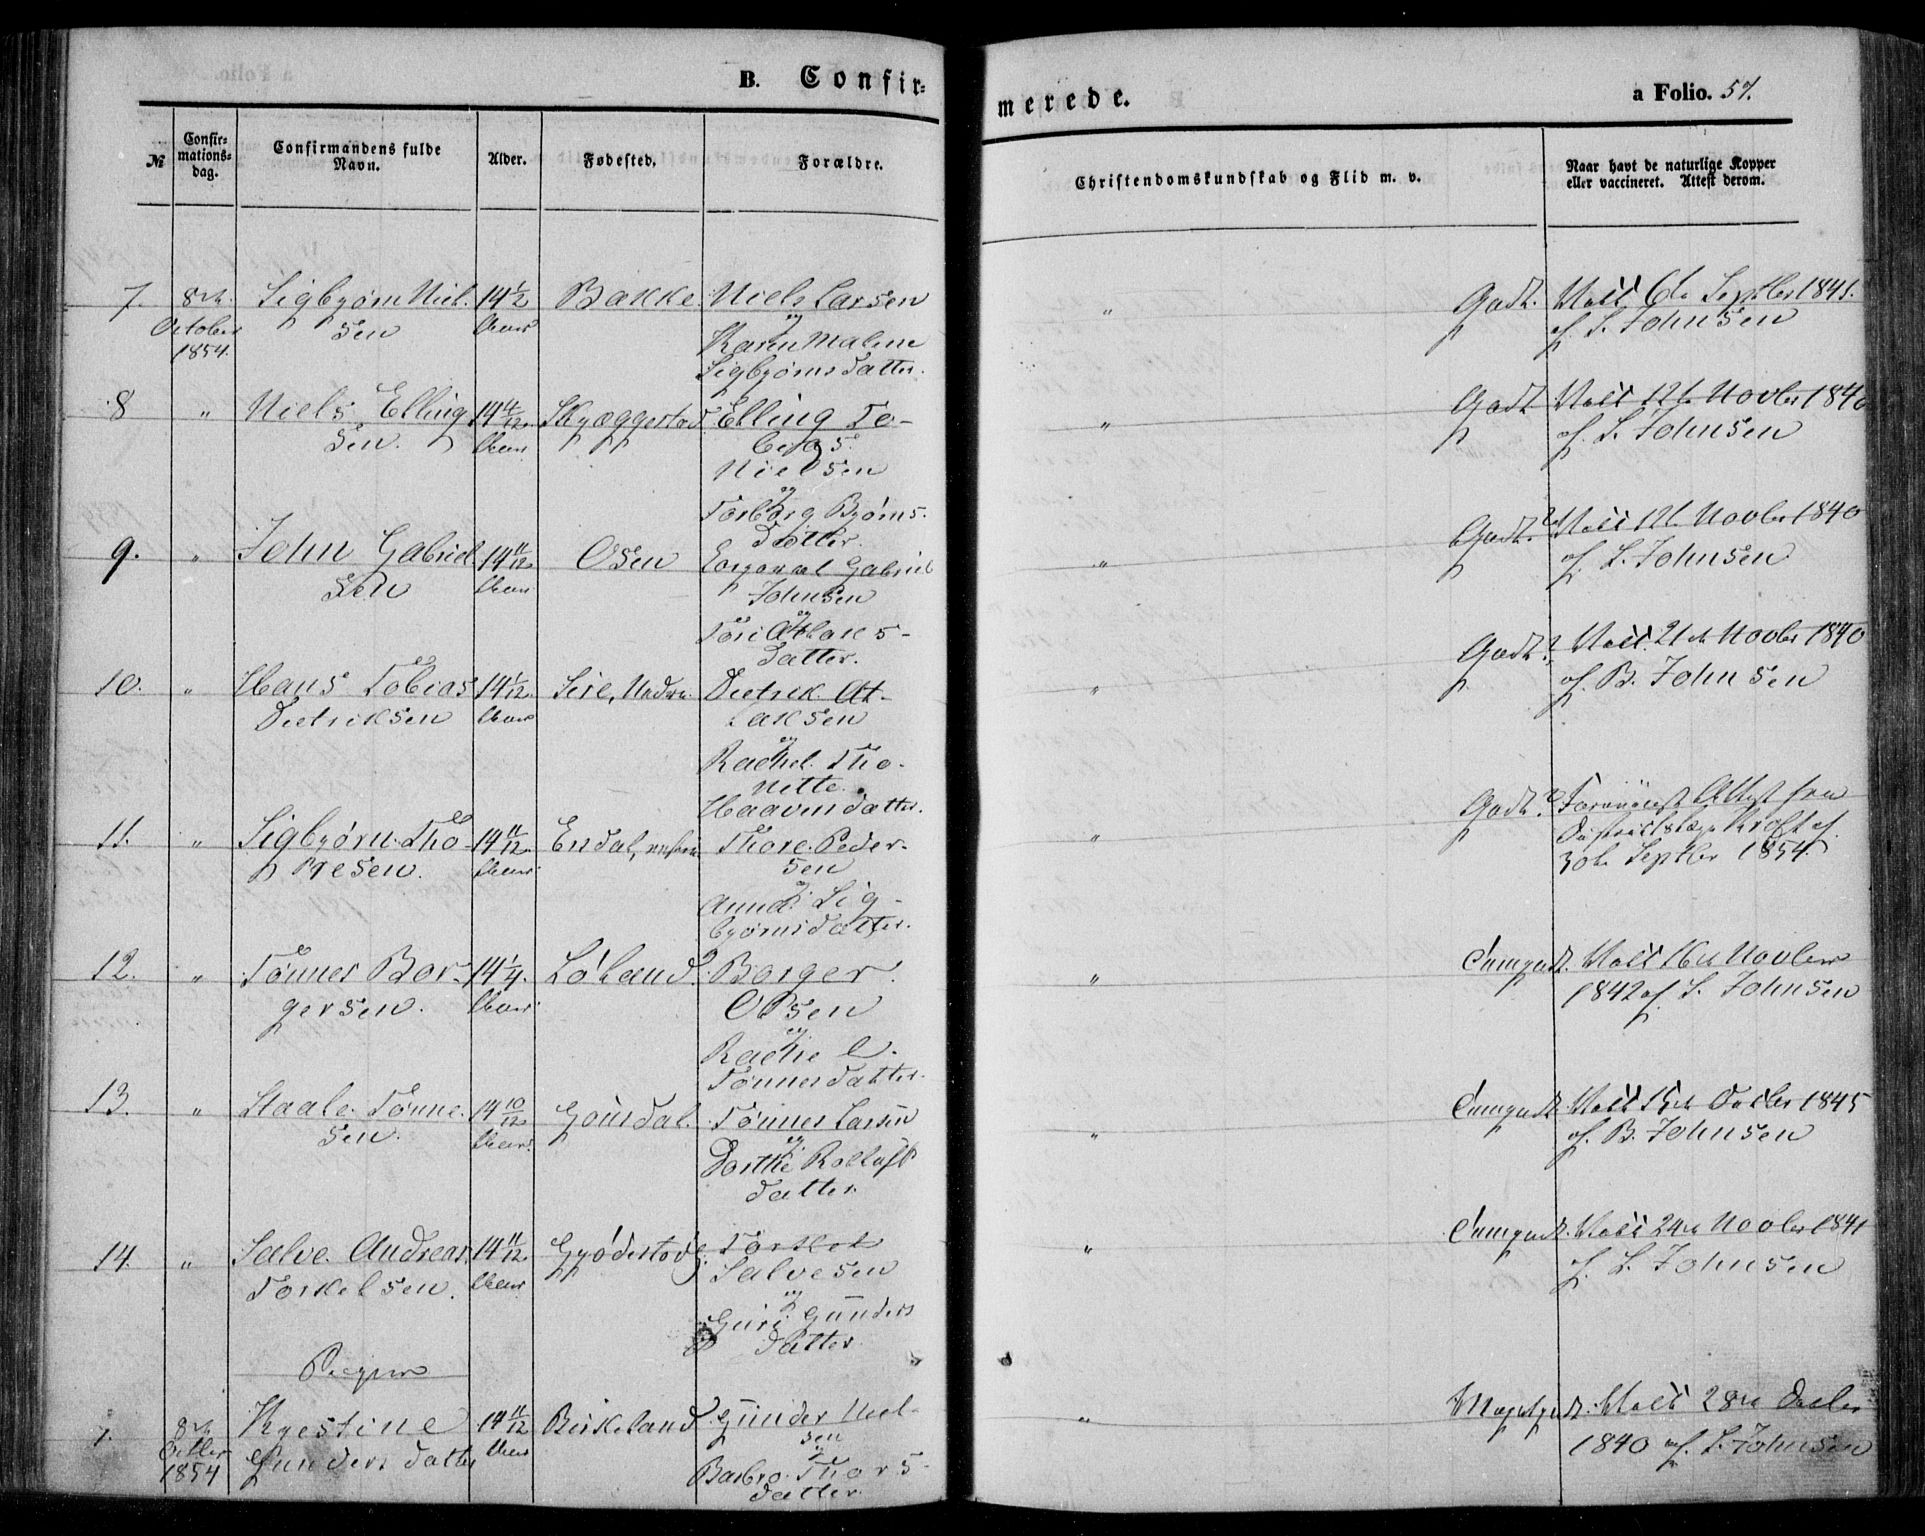 B. Confirmerede. a Folio. 57.
№ Confirmationsdag. Confirmandens fulde Navn. Alder. Fødested. Forældre. Christendomskundskab og Flid m. v. Naar havt de naturlige Kopper eller vaccineret. Attest derom.
7. 8de October 1854. Sigbjørn Nielsen 14 1/2 Aar Bakke. Niels Larsen og Karen Malene Sigbjørnsdatter. " Godt. Vacc. 6te Septbr 1841. af S. Johnsen
8 " Niels Ellingsen. 14 4/12 Aar Skjæggestad Elling Tobias Nielsen og Torborg Bjørnsdatter. " Godt Vacc 12te Novbr 1840 af S. Johnsen
9. " John Gabrielsen 14 11/12 Aar Osen Gabriel Johnsen og Tori Atlaksdatter. " Godt. Vacc 12te Novbr 1840 af S. Johnsen
10. " Hans Tobias Dietriksen 14 1/12 Aar Sire, Nedre. Dietrik Atlaksen og Rachel Thonette Haavensdatter. " Godt. Vacc. 21de Novbr 1840 af B. Johnsen
11. " Sigbjørn Thoresen. 14 11/12 Aar Endal, Thore Pedersen og Anna Sigbjørnsdatter. " Godt. Attest fra Districtslæge Kroft af 30te Septbr 1854.
12. " Tønnes Borgersen. 14 1/4 Aar Løland. Borger Olsen og Rachel Tønnesdatter. " Vacc 16de Novbr 1842 af S. Johnsen
13. " Staale Tønnesen. 14 10/12 Aar Tønnes Larsen og Dorthe datter. " Vacc Decbr 1845 af B. Johnsen
14. " Salve Andreas Torkelsen. 14 11/12 Aar Gjødestad Torkel Salvesen og Guri Gundersdatter. " Vacc 24de Novbr 1841 af S. Johnsen
Piger
8de Octbr 1854 Kjestine Gundersdatter 14 11/12 Aar Birkeland Gunder Nielsen og Barbro Thorsdatter. " Meget godt. Vacc 28de Decbr 1840 af S. Johnsen